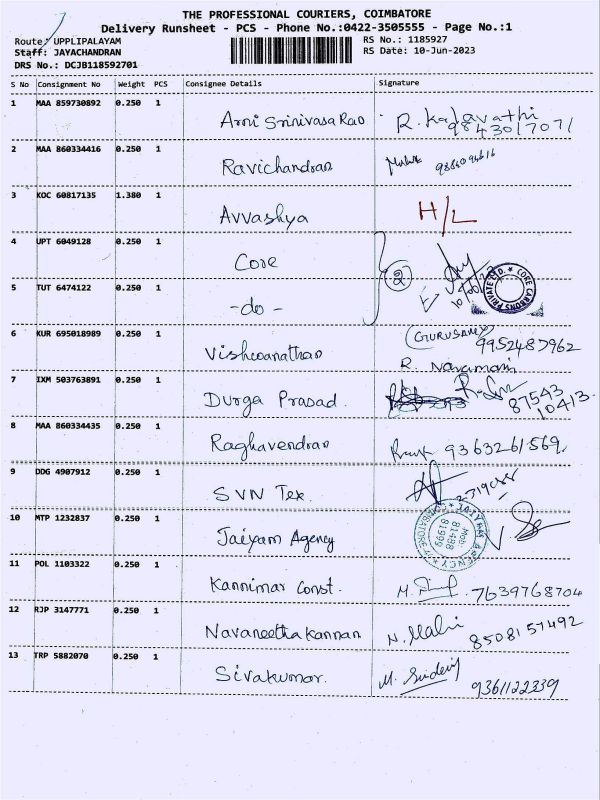 THE PROFESSIONAL COURIERS, COIMBATORE
Delivery Runsheet - PCS - Phone No.:0422-3505555 - Page No.:1
Route: UPPLIPALAYAM
RS No.: 1185927
Staff: JAYACHANDRAN
RS Date: 10-Jun-2023
DRS No.: DCJB118592701
S No Consignment No Weight PCS Consignee Details Signature
1 MAA 859730892 0.250 1 Arni Srinivasa Rao R. Kalavathi
9843017071
2 MAA 860334416 0.250 1 Ravichandran
3 KOC 60817135 1.380 1 Avvashya H/L
4 UPT 6049128 0.250 1 Core
2
5 TUT 6474122 0.250 1 -do-
CORE CARBONS PRIVATE LTD.
6 KUR 695018989 0.250 1 Vishwanathan (GURUSAMY) 9952487962
R. Naramani
7 IXM 503763891 0.250 1 Durga Prasad 87543
10413
8 MAA 860334435 0.250 1 Raghavendran 9363261569
9 DDG 4907912 0.250 1 SVN Tex
10 MTP 1232837 0.250 1 Jaiyam Agency
AGENCY
COIMBATORE
Mob
81488
81999
11 POL 1103322 0.250 1 Kannimar Const. 7639768704
12 RJP 3147771 0.250 1 Navaneetha Kannan N. Mani 8508157492
13 TRP 5882070 0.250 1 Sivakumar. 9361122339